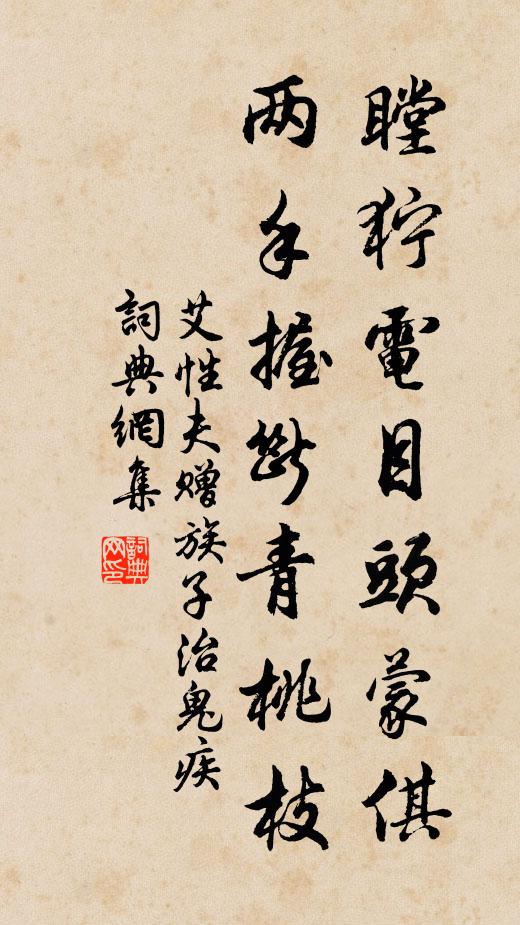 瞠狞電目頭蒙倛
两手握斷青桃枝
艾性夫赠族子治鬼疾
詞典網集
詞典網印